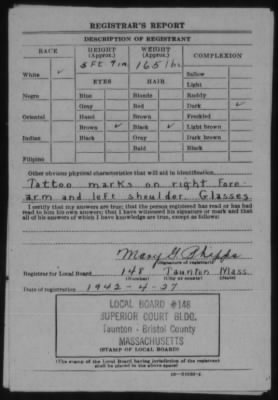 REGISTRAR'S REPORT
DESCRIPTION OF REGISTRANT
RACE HEIGHT (Approx.) WEIGHT (Approx.) COMPLEXION
5 Ft 9 in 165 lbs
White ✓ Sallow
EYES HAIR Light
Negro Blue Blonde Ruddy
Gray Red Dark ✓
Oriental Hazel Brown Freckled
Brown ✓ Black ✓ Light brown
Indian Black Gray Dark brown
Bald Black
Filipino
Other obvious physical characteristics that will aid in identification
Tattoo marks on right fore-
arm and left shoulder. Glasses
I certify that my answers are true; that the person registered has read or has had
read to him his own answers; that I have witnessed his signature or mark and that
all of his answers of which I have knowledge are true, except as follows:
Mary G. Phipps
(Signature of registrar)
Registrar for Local Board 148 Taunton Mass.
(Number) (City or county) (State)
Date of registration 1942-4-27
LOCAL BOARD #148
SUPERIOR COURT BLDG.
Taunton - Bristol County
MASSACHUSETTS
(STAMP OF LOCAL BOARD)
(The stamp of the Local Board having jurisdiction of the registrant
shall be placed in the above space)